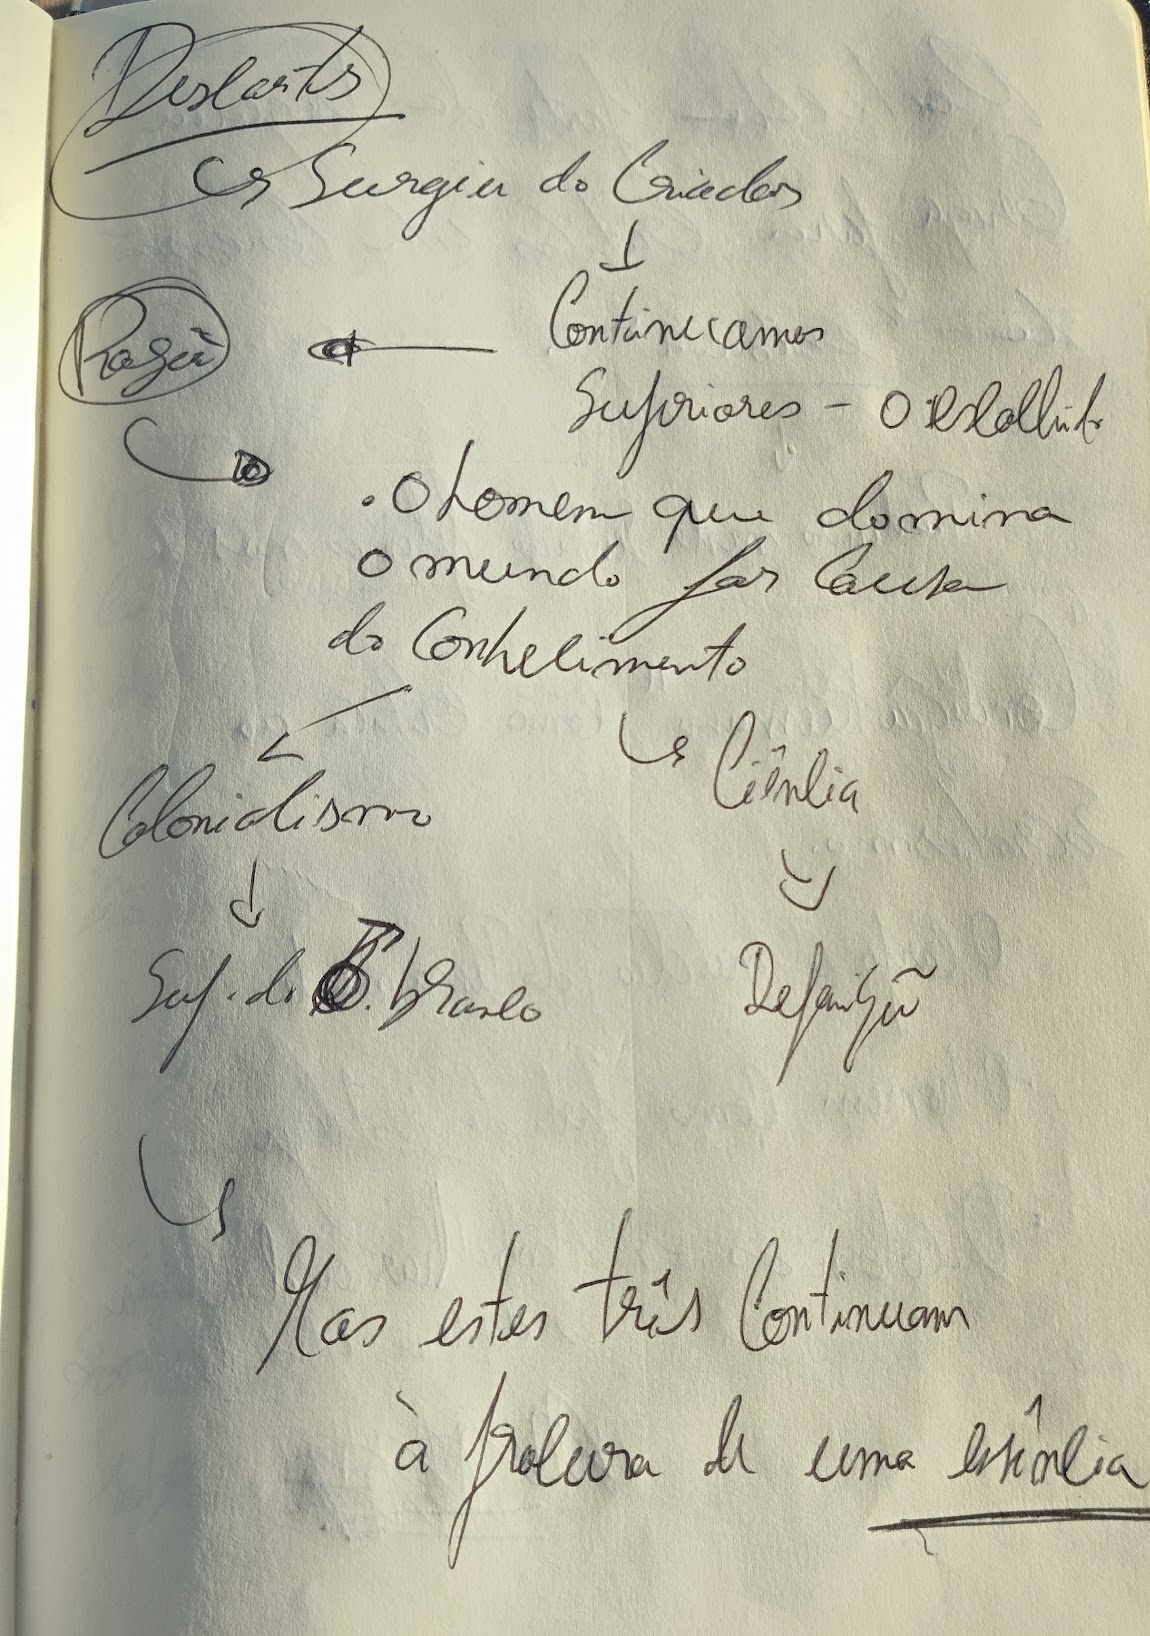 Descartes
Surgiu do Criador
Continuamos
Razão
Superiores - O escolhido
. O homem que domina
o mundo por causa
do Conhecimento
Colonialismo
Ciência
Sup. do H. branco
Definição
Mas estes três Continuam
à procura de uma essência